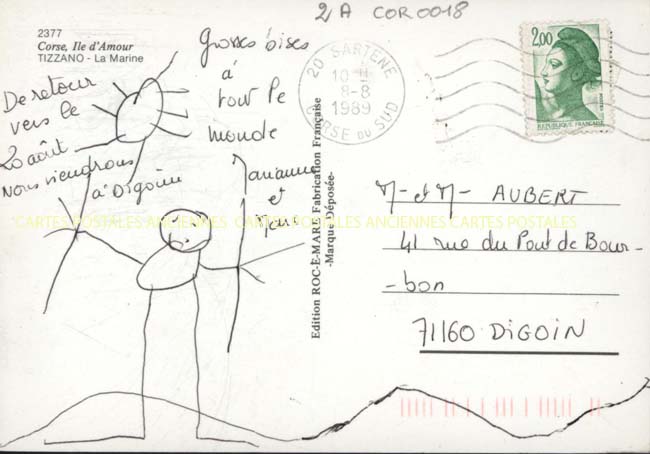 2A COR0018
2377
Corse, Ile d'Amour
TIZZANO - La Marine
De retour
vers le
20 août
nous viendrons
à Digoin
Grosses bises
à
tout le
monde
Marianne
et
20 SARTENE
10 H
8-8
1989
CORSE DU SUD
2,00
REPUBLIQUE FRANÇAISE
Edition ROC-E-MARE Fabrication Française
-Marque Déposée-
CARTES POSTALES ANCIENNES CARTES POSTALES ANCIENNES CARTES POSTALES
M- et M- AUBERT
41 rue du Pont de Bour-
-bon
71160 DIGOIN